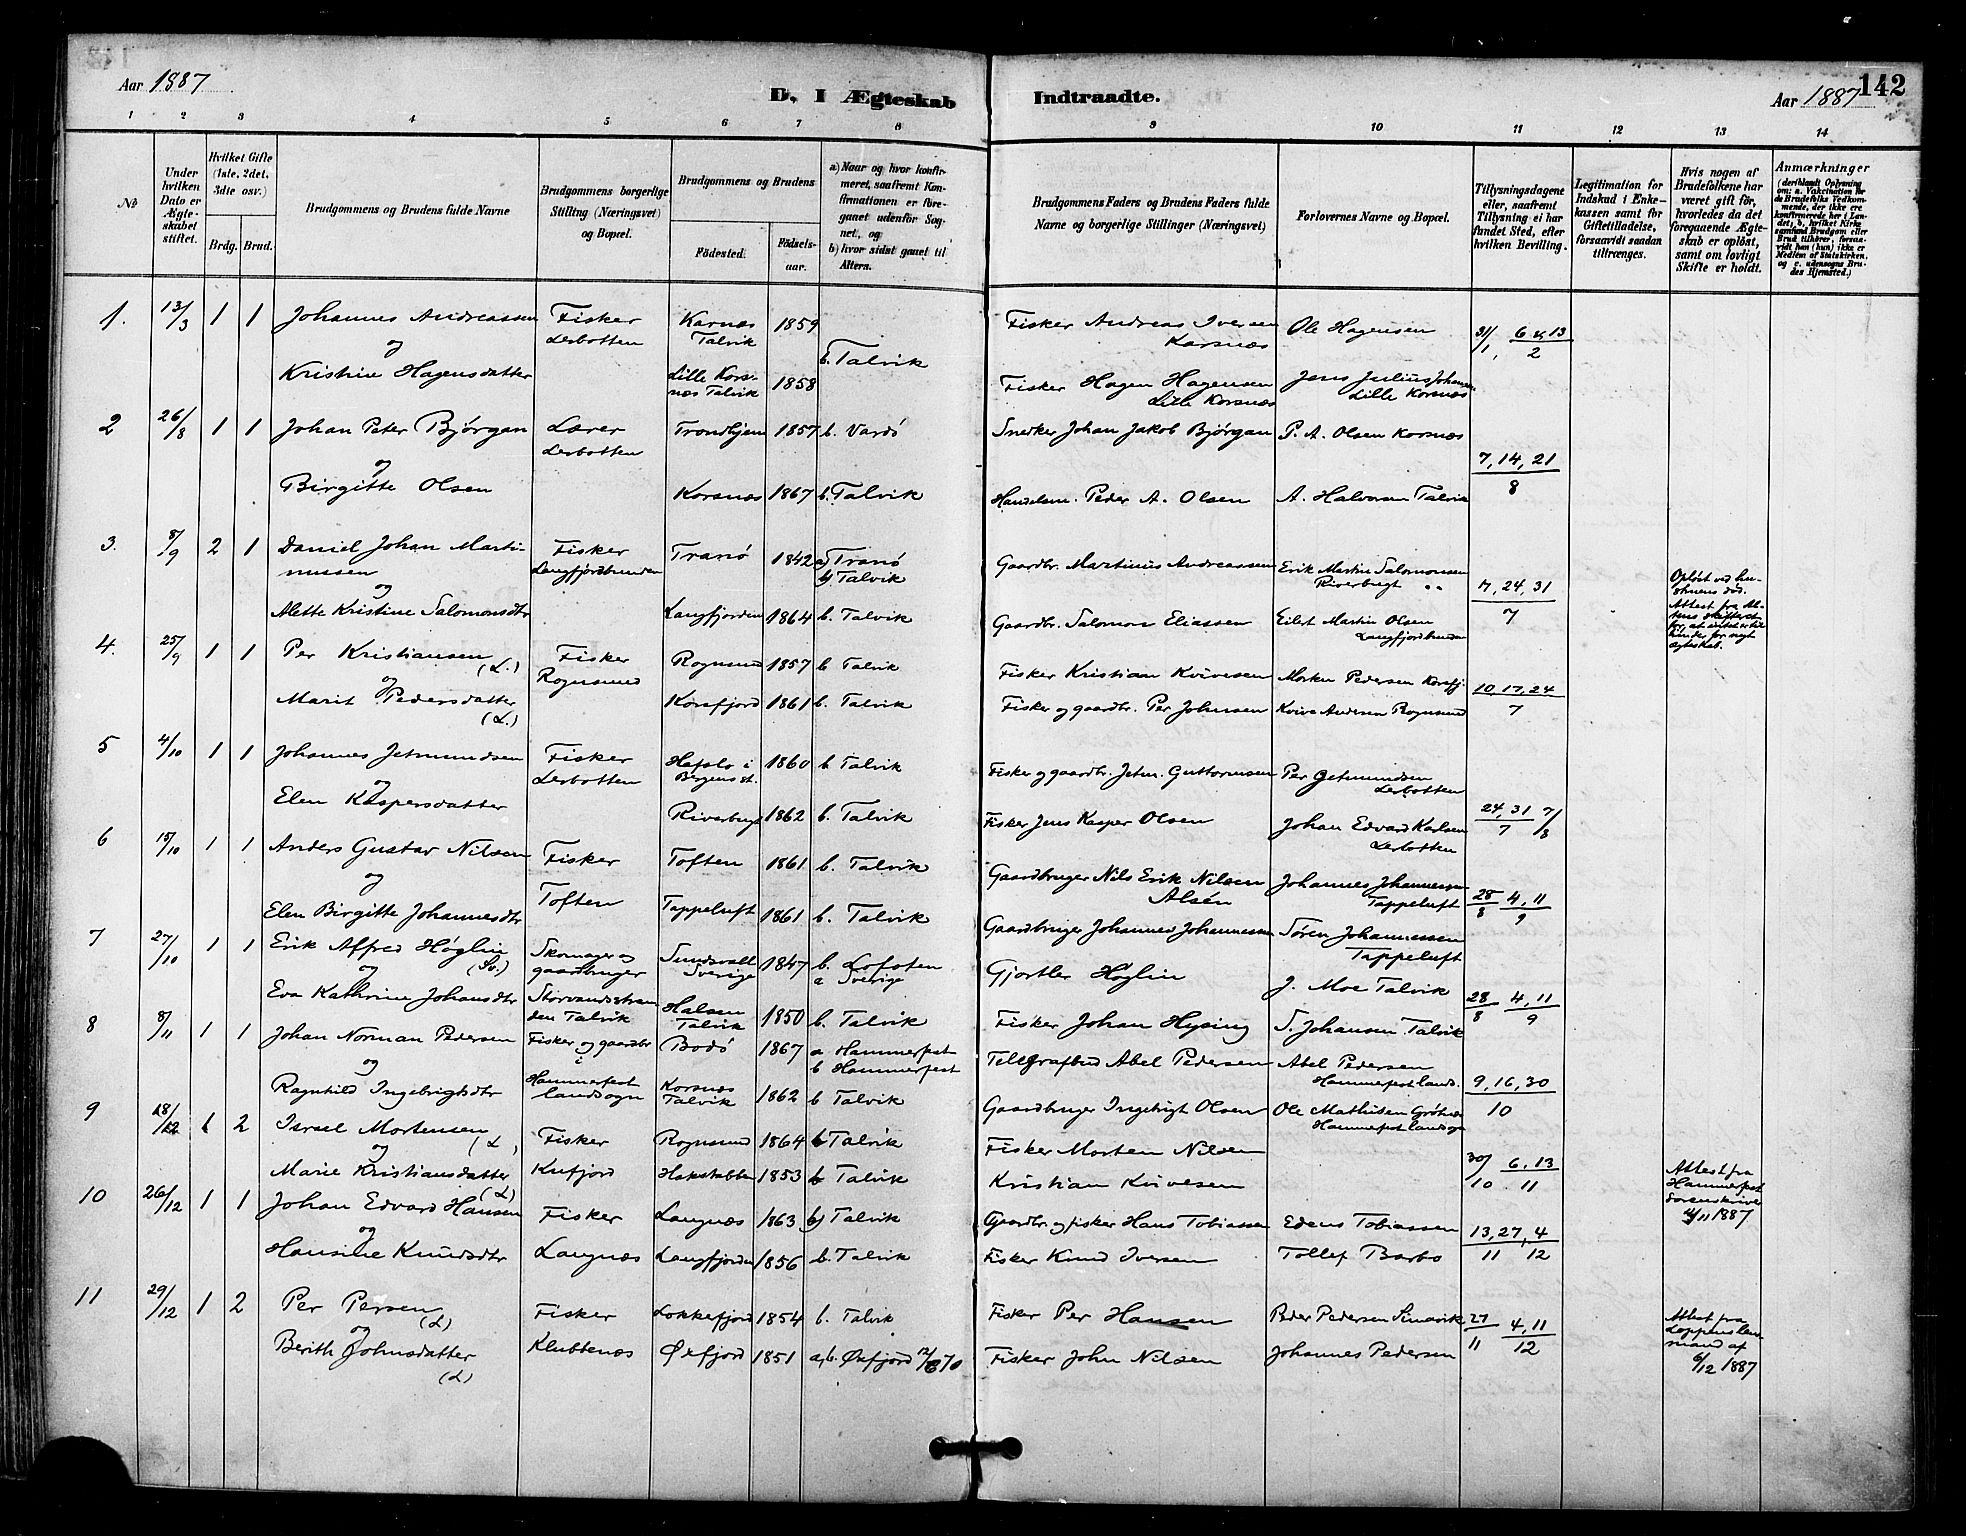 142
Aar 1887
D. I Ægteskab Indtraadte.
Aar 1887
1 2 3 4 5 6 7 8 9 10 11 12 13 14
No
Under hvilken Dato er Ægteskabet stiftet.
Hvilket Gifte (1ste, 2det, 3die osv.)
Brdg. Brud.
Brudgommens og Brudens fulde Navne
Brudgommens borgerlige Stilling (Næringsvei) og Bopæl.
Brudgommens og Brudens
Födested. Födselsaar.
a) Naar og hvor konfirmeret, saafremt Konfirmationen er foregaaet udenfor Sognet, og
b) hvor sidst gaaet til Alters.
Brudgommens Faders og Brudens Faders fulde Navne og borgerlige Stillinger (Næringsvei)
Forlovernes Navne og Bopæl.
Tillysningsdagene eller, saafremt Tillysning ei har fundet Sted, efter hvilken Bevilling.
Legitimation for Indskud i Enkekassen samt for Giftetilladelse, forsaavidt saadan tiltrænges.
Hvis nogen af Brudefolkene har været gift för, hvorledes da det foregaaende Ægteskab er oplöst, samt om lovligt Skifte er holdt.
Anmærkninger
(deriblandt Oplysning om: a. Vakcination for de Brudefolks Vedkommende, der ikke ere konfirmerede her i Landet; b. hvilket Kirkesamfund Brudgom eller Brud tilhörer, forsaavidt han (hun) ikke er Medlem af Statskirken, og c. udensogns Brudes Hjemsted.)
1. 13/3 1 1 Johannes Andreassen Fisker Karnæs 1859 Fisker Andreas Iversen Ole Hagensen 31/1, 6 & 13/2
og Lerbotten Talvik b. Talvik Korsnæs
Kristine Hagensdatter Lille Korsnæs Talvik 1858 Fisker Hagen Hagensen Jens Julius Johansen
Lille Korsnæs Lille Korsnæs
2 26/8 1 1 Johan Peter Bjørgan Lærer Trondhjem 1857 b. Vardö Snedker Johan Jakob Bjørgan P. A. Olsen Korsnæs
og Lerbotten 7, 14, 21/8
Birgitte Olsen Korsnæs 1867 b. Talvik Handelsm. Peder A. Olsen A. Halvorsen Talvik
3. 8/9 2 1 Daniel Johan Martinussen Fisker Tranö 1842 a) Tranö b) Talvik Gaardbr. Martinus Andreassen Erik Martin Salomonsen
og Langfjordbunden Riverbugt 7, 24, 31/7 Opløst ved hustruens död.
Alette Kristine Salomonsdtr Langfjorden 1864 b. Talvik Gaardbr. Salomon Eliassen Eilert Martin Olsen Attest fra
Langfjordbunden
4. 25/9 1 1 Per Kristiansen (L.) Fisker Rognsund 1857 b Talvik Fisker Kristian Kvivesen Morten Pedersen Korsfj.
og Rognsund 10, 17, 24/7
Marit Pedersdatter (L.) Korsfjord 1861 b. Talvik Fisker og gaardbr. Per Johnsen Kvive Andersen Rognsund
5 4/10 1 1 Johannes Jetmundsen Fisker Hafslo i Bergens st. 1860 b Talvik Fisker og gaardbr. Jetm. Guttormsen Per Jetmundsen
og Lerbotten Lerbotten
Elen Kaspersdatter Riverbugt 1862 b. Talvik Fisker Jens Kasper Olsen Johan Edvard Karlsen 24, 31/7 7/8
Lerbotten
6 15/10 1 1 Anders Gustav Nilsen Fisker Toften 1861 b. Talvik Gaardbruger Nils Erik Nilsen Johannes Johannessen
og Toften Alsen Tappeluft 28/8 4, 11/9
Elen Birgitte Johannesdtr Tappeluft 1861 b. Talvik Gaardbruger Johannes Johannessen Sören Johannessen
Tappeluft
7 27/10 1 1 Erik Alfred Höglin (Sv.) Skomager og gaardbruger Sundsvall Sverige 1847 b. Lofoten a Sverige Gjortler Höglin J. Moe Talvik
og 28/8 4, 11/9
Eva Kathrine Johansdtr Storvandsstranden Talvik Halsen Talvik 1850 b. Talvik Fisker Johan Hysing S. Johansen Talvik
8 8/11 1 1 Johan Norman Pedersen Fisker og gaardbr Bodö 1867 a Hammerfest b Hammerfest Telegrafbud Abel Pedersen Abel Pedersen
og i Hammerfest landsogn Hammerfest lands. 9, 16, 30/10
Ragnhild Ingebrigtsdtr Korsnæs Talvik 1862 b Talvik Gaardbruger Ingebrigt Olsen Ole Mathisen
Hammerfest landsogn
9 28/12 1 2 Israel Mortensen (L) Fisker Rognsund 1864 b Talvik Fisker Morten Nilsen
og 30/10 6, 13/11 Attest fra Hammerfest Sorenskriver
Marie Kristiansdatter (L) Kufjord Hakstabben 1853 b Talvik Kristian Kvivesen 4/11 1887
10 26/12 1 1 Johan Edvard Hansen Fisker Langnæs 1863 b) Talvik Gaardbr. og fisker Hans Tobiassen Edens Tobiassen 13, 27/11, 4/12
og
Hansine Knudsdtr Langnæs Langfjorden 1856 b. Talvik Fisker Knud Iversen Tollef Barbo
11 29/12 1 2 Per Persen (L) Fisker Lokkefjord 1854 b. Talvik Fisker Per Hansen Peder Pedersen Simavik 27/11 4, 11/12 Attest fra
og Loppens lensmand af
Berith Johnsdatter (L) Klubbenæs Øxfjord 1851 a, b. Øxfjord Fisker John Nilsen Johannes Pedersen 6/12 1887